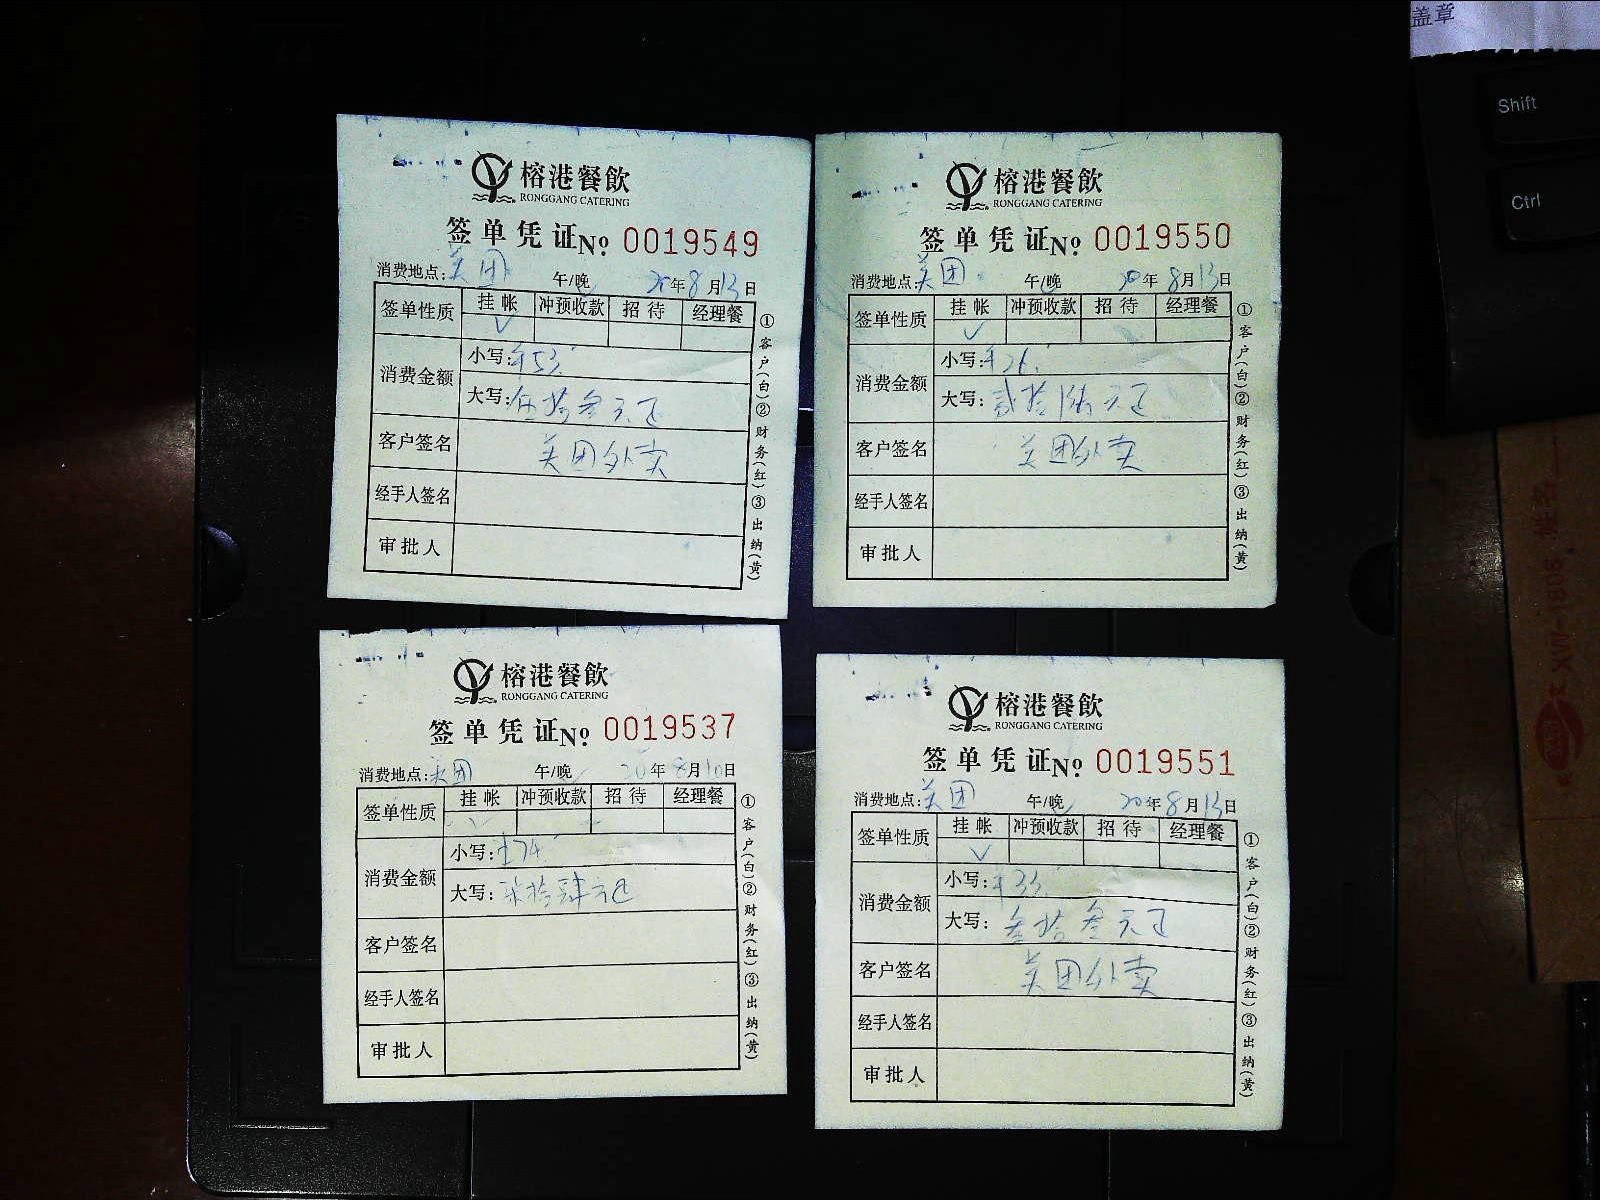 盖章
Shift
Ctrl
榕港餐飲
RONGGANG CATERING
签单凭证 No 0019549
消费地点:美团 午/晚 20年8月13日
签单性质 挂帐 冲预收款 招待 经理餐
✓
消费金额 小写:¥53
大写:伍拾叁元正
客户签名 美团外卖
经手人签名
审批人
①客户(白)②财务(红)③出纳(黄)
榕港餐飲
RONGGANG CATERING
签单凭证 No 0019550
消费地点:美团 午/晚 20年8月13日
签单性质 挂帐 冲预收款 招待 经理餐
✓
消费金额 小写:¥26
大写:贰拾陆元正
客户签名 美团外卖
经手人签名
审批人
①客户(白)②财务(红)③出纳(黄)
榕港餐飲
RONGGANG CATERING
签单凭证 No 0019537
消费地点:美团 午/晚 20年8月10日
签单性质 挂帐 冲预收款 招待 经理餐
✓
消费金额 小写:¥74
大写:柒拾肆元正
客户签名
经手人签名
审批人
①客户(白)②财务(红)③出纳(黄)
榕港餐飲
RONGGANG CATERING
签单凭证 No 0019551
消费地点:美团 午/晚 20年8月13日
签单性质 挂帐 冲预收款 招待 经理餐
✓
消费金额 小写:¥33
大写:叁拾叁元正
客户签名 美团外卖
经手人签名
审批人
①客户(白)②财务(红)③出纳(黄)
XW-1806